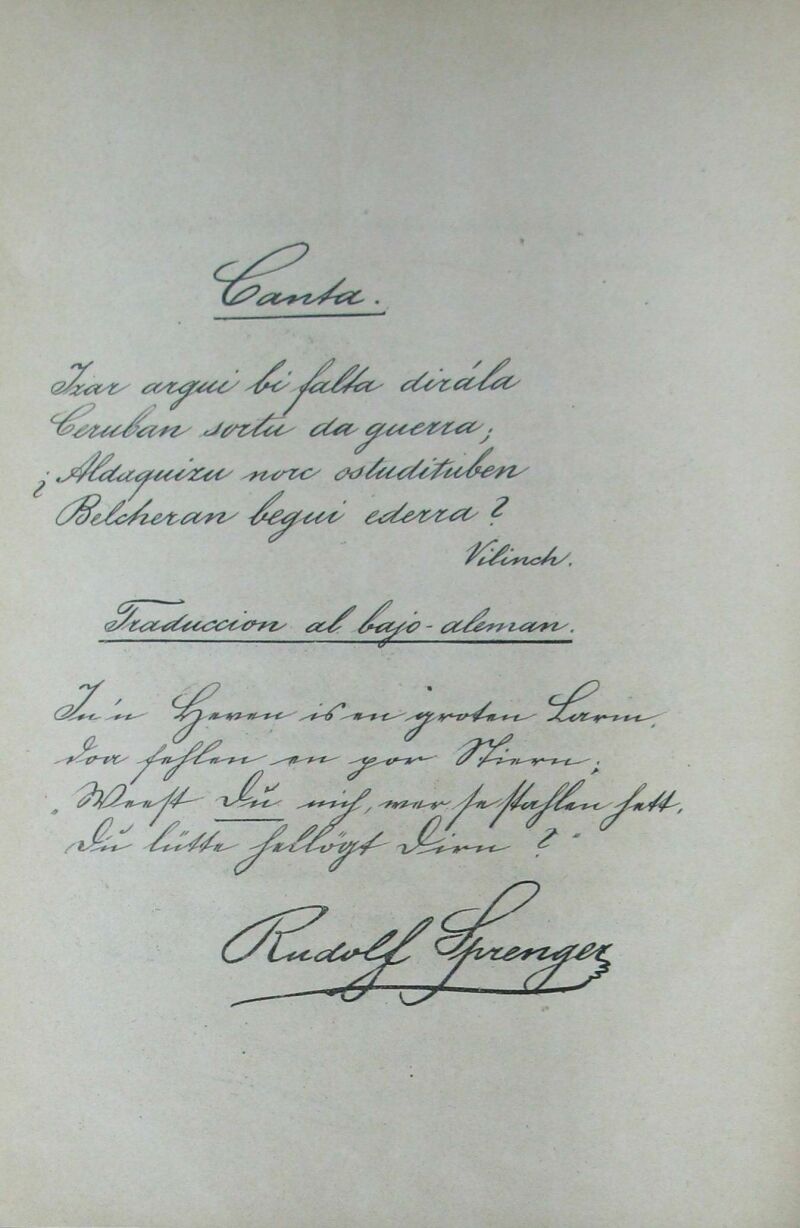 Canta.
Izar argui bi falta dirála
Ceruban sortu da guerra;
¿Aldaquizu norc ostudituben
Belcheran begui ederra?
Vilinch.
Traduccion al bajo-aleman.
In'n Heven is en groten Larm,
doa fehlen en por Stiern;
„Weest Du nich, wer se stahlen hett,
Du lütte hellögt Dirn?"
Rudolf Sprenger